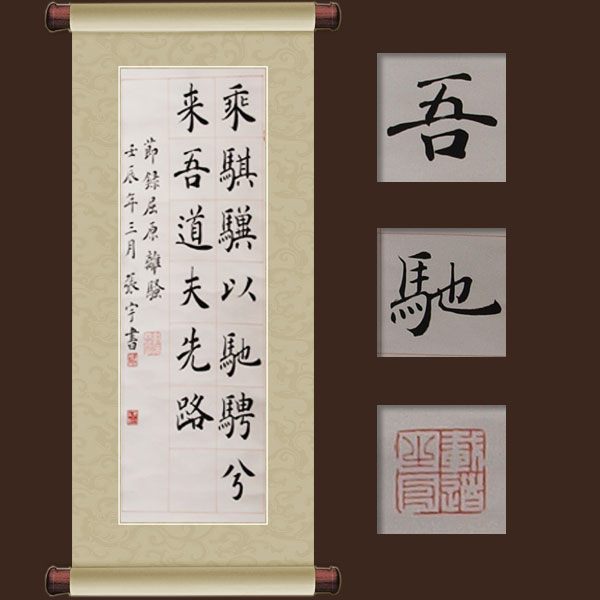 乘騏驥以馳騁兮
来吾道夫先路
節錄屈原離騷
壬辰年三月張宇書
吾
馳